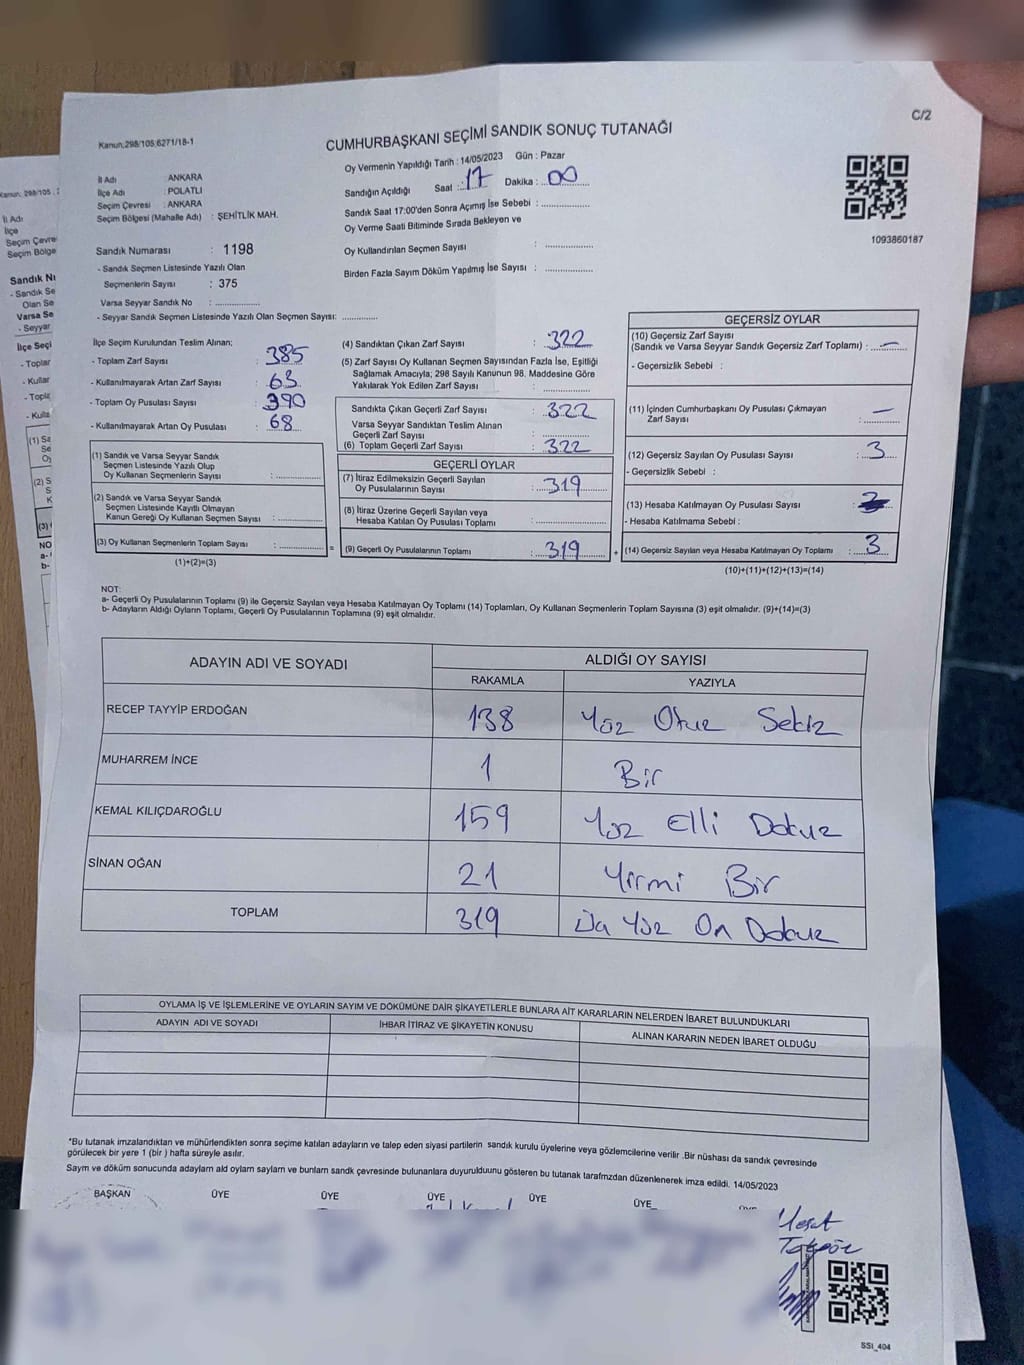 C/2
Kanun,298/105,6271/18-1
CUMHURBAŞKANI SEÇİMİ SANDIK SONUÇ TUTANAĞI
Oy Vermenin Yapıldığı Tarih : 14/05/2023 Gün : Pazar
İl Adı : ANKARA
İlçe Adı : POLATLI
Seçim Çevresi : ANKARA
Seçim Bölgesi (Mahalle Adı) : ŞEHİTLİK MAH.
Sandığın Açıldığı Saat : 17 Dakika : 00
Sandık Saat 17:00'den Sonra Açımış İse Sebebi :
Oy Verme Saati Bitiminde Sırada Bekleyen ve
Oy Kullandırılan Seçmen Sayısı :
Birden Fazla Sayım Döküm Yapılmış İse Sayısı :
1093860187
Sandık Numarası : 1198
- Sandık Seçmen Listesinde Yazılı Olan
Seçmenlerin Sayısı : 375
Varsa Seyyar Sandık No :
- Seyyar Sandık Seçmen Listesinde Yazılı Olan Seçmen Sayısı:
İlçe Seçim Kurulundan Teslim Alınan;
- Toplam Zarf Sayısı : 385
- Kullanılmayarak Artan Zarf Sayısı : 63
- Toplam Oy Pusulası Sayısı : 390
- Kullanılmayarak Artan Oy Pusulası : 68
(1) Sandık ve Varsa Seyyar Sandık
Seçmen Listesinde Yazılı Olup
Oy Kullanan Seçmenlerin Sayısı :
(2) Sandık ve Varsa Seyyar Sandık
Seçmen Listesinde Kayıtlı Olmayan
Kanun Gereği Oy Kullanan Seçmen Sayısı :
(3) Oy Kullanan Seçmenlerin Toplam Sayısı :
(1)+(2)=(3)
(4) Sandıktan Çıkan Zarf Sayısı : 322
(5) Zarf Sayısı Oy Kullanan Seçmen Sayısından Fazla İse, Eşitliği
Sağlamak Amacıyla; 298 Sayılı Kanunun 98. Maddesine Göre
Yakılarak Yok Edilen Zarf Sayısı :
Sandıkta Çıkan Geçerli Zarf Sayısı : 322
Varsa Seyyar Sandıktan Teslim Alınan
Geçerli Zarf Sayısı :
(6) Toplam Geçerli Zarf Sayısı : 322
GEÇERLİ OYLAR
(7) İtiraz Edilmeksizin Geçerli Sayılan
Oy Pusulalarının Sayısı : 319
(8) İtiraz Üzerine Geçerli Sayılan veya
Hesaba Katılan Oy Pusulası Toplamı :
= (9) Geçerli Oy Pusulalarının Toplamı : 319 +
GEÇERSİZ OYLAR
(10) Geçersiz Zarf Sayısı
(Sandık ve Varsa Seyyar Sandık Geçersiz Zarf Toplamı) : —
- Geçersizlik Sebebi :
(11) İçinden Cumhurbaşkanı Oy Pusulası Çıkmayan
Zarf Sayısı : —
(12) Geçersiz Sayılan Oy Pusulası Sayısı : 3
- Geçersizlik Sebebi :
(13) Hesaba Katılmayan Oy Pusulası Sayısı :
- Hesaba Katılmama Sebebi :
(14) Geçersiz Sayılan veya Hesaba Katılmayan Oy Toplamı : 3
(10)+(11)+(12)+(13)=(14)
NOT:
a- Geçerli Oy Pusulalarının Toplamı (9) ile Geçersiz Sayılan veya Hesaba Katılmayan Oy Toplamı (14) Toplamları, Oy Kullanan Seçmenlerin Toplam Sayısına (3) eşit olmalıdır. (9)+(14)=(3)
b- Adayların Aldığı Oyların Toplamı, Geçerli Oy Pusulalarının Toplamına (9) eşit olmalıdır.
ADAYIN ADI VE SOYADI ALDIĞI OY SAYISI
RAKAMLA YAZIYLA
RECEP TAYYİP ERDOĞAN 138 Yüz Otuz Sekiz
MUHARREM İNCE 1 Bir
KEMAL KILIÇDAROĞLU 159 Yüz Elli Dokuz
SİNAN OĞAN 21 Yirmi Bir
TOPLAM 319 Üç Yüz On Dokuz
OYLAMA İŞ VE İŞLEMLERİNE VE OYLARIN SAYIM VE DÖKÜMÜNE DAİR ŞİKAYETLERLE BUNLARA AİT KARARLARIN NELERDEN İBARET BULUNDUKLARI
ADAYIN ADI VE SOYADI İHBAR İTİRAZ VE ŞİKAYETİN KONUSU ALINAN KARARIN NEDEN İBARET OLDUĞU
*Bu tutanak imzalandıktan ve mühürlendikten sonra seçime katılan adayların ve talep eden siyasi partilerin sandık kurulu üyelerine veya gözlemcilerine verilir .Bir nüshası da sandık çevresinde
görülecek bir yere 1 (bir ) hafta süreyle asılır.
Sayım ve döküm sonucunda adayların ald oyların sayların ve bunların sandk çevresinde bulunanlara duyurulduunu gösteren bu tutanak tarafmzdan düzenlenerek imza edildi. 14/05/2023
BAŞKAN ÜYE ÜYE ÜYE ÜYE ÜYE
SSI_404